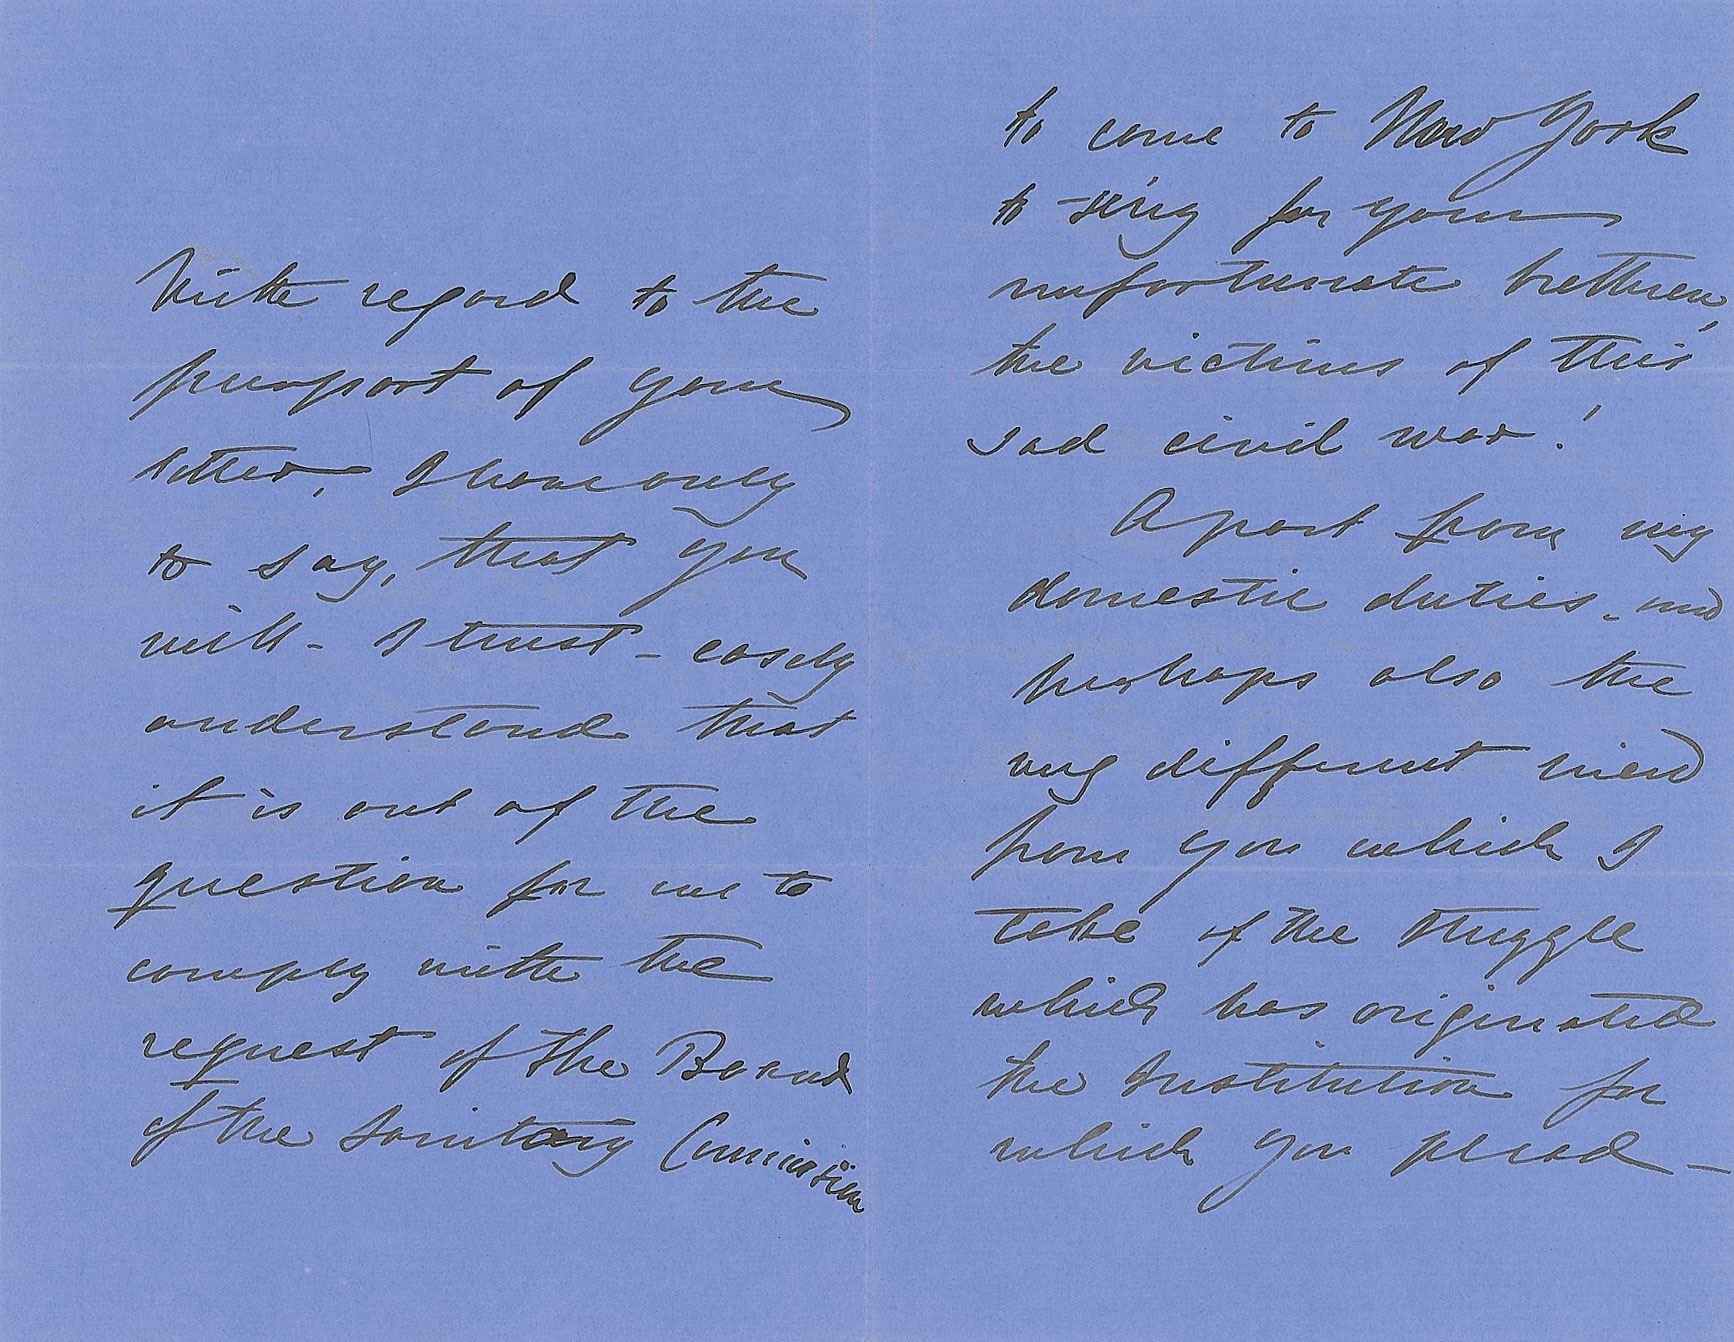 With regard to the
purport of your
letter, I have only
to say, that you
will - I trust - easily
understand that
it is out of the
question for me to
comply with the
request of the Board
of the Sanitary Commission
to come to New York
to sing for your
unfortunate brethren,
the victims of this
sad civil war!
Apart from my
domestic duties - and
perhaps also the
very different view
from you which I
take of the struggle
which has originated
the Institution for
which you plead -